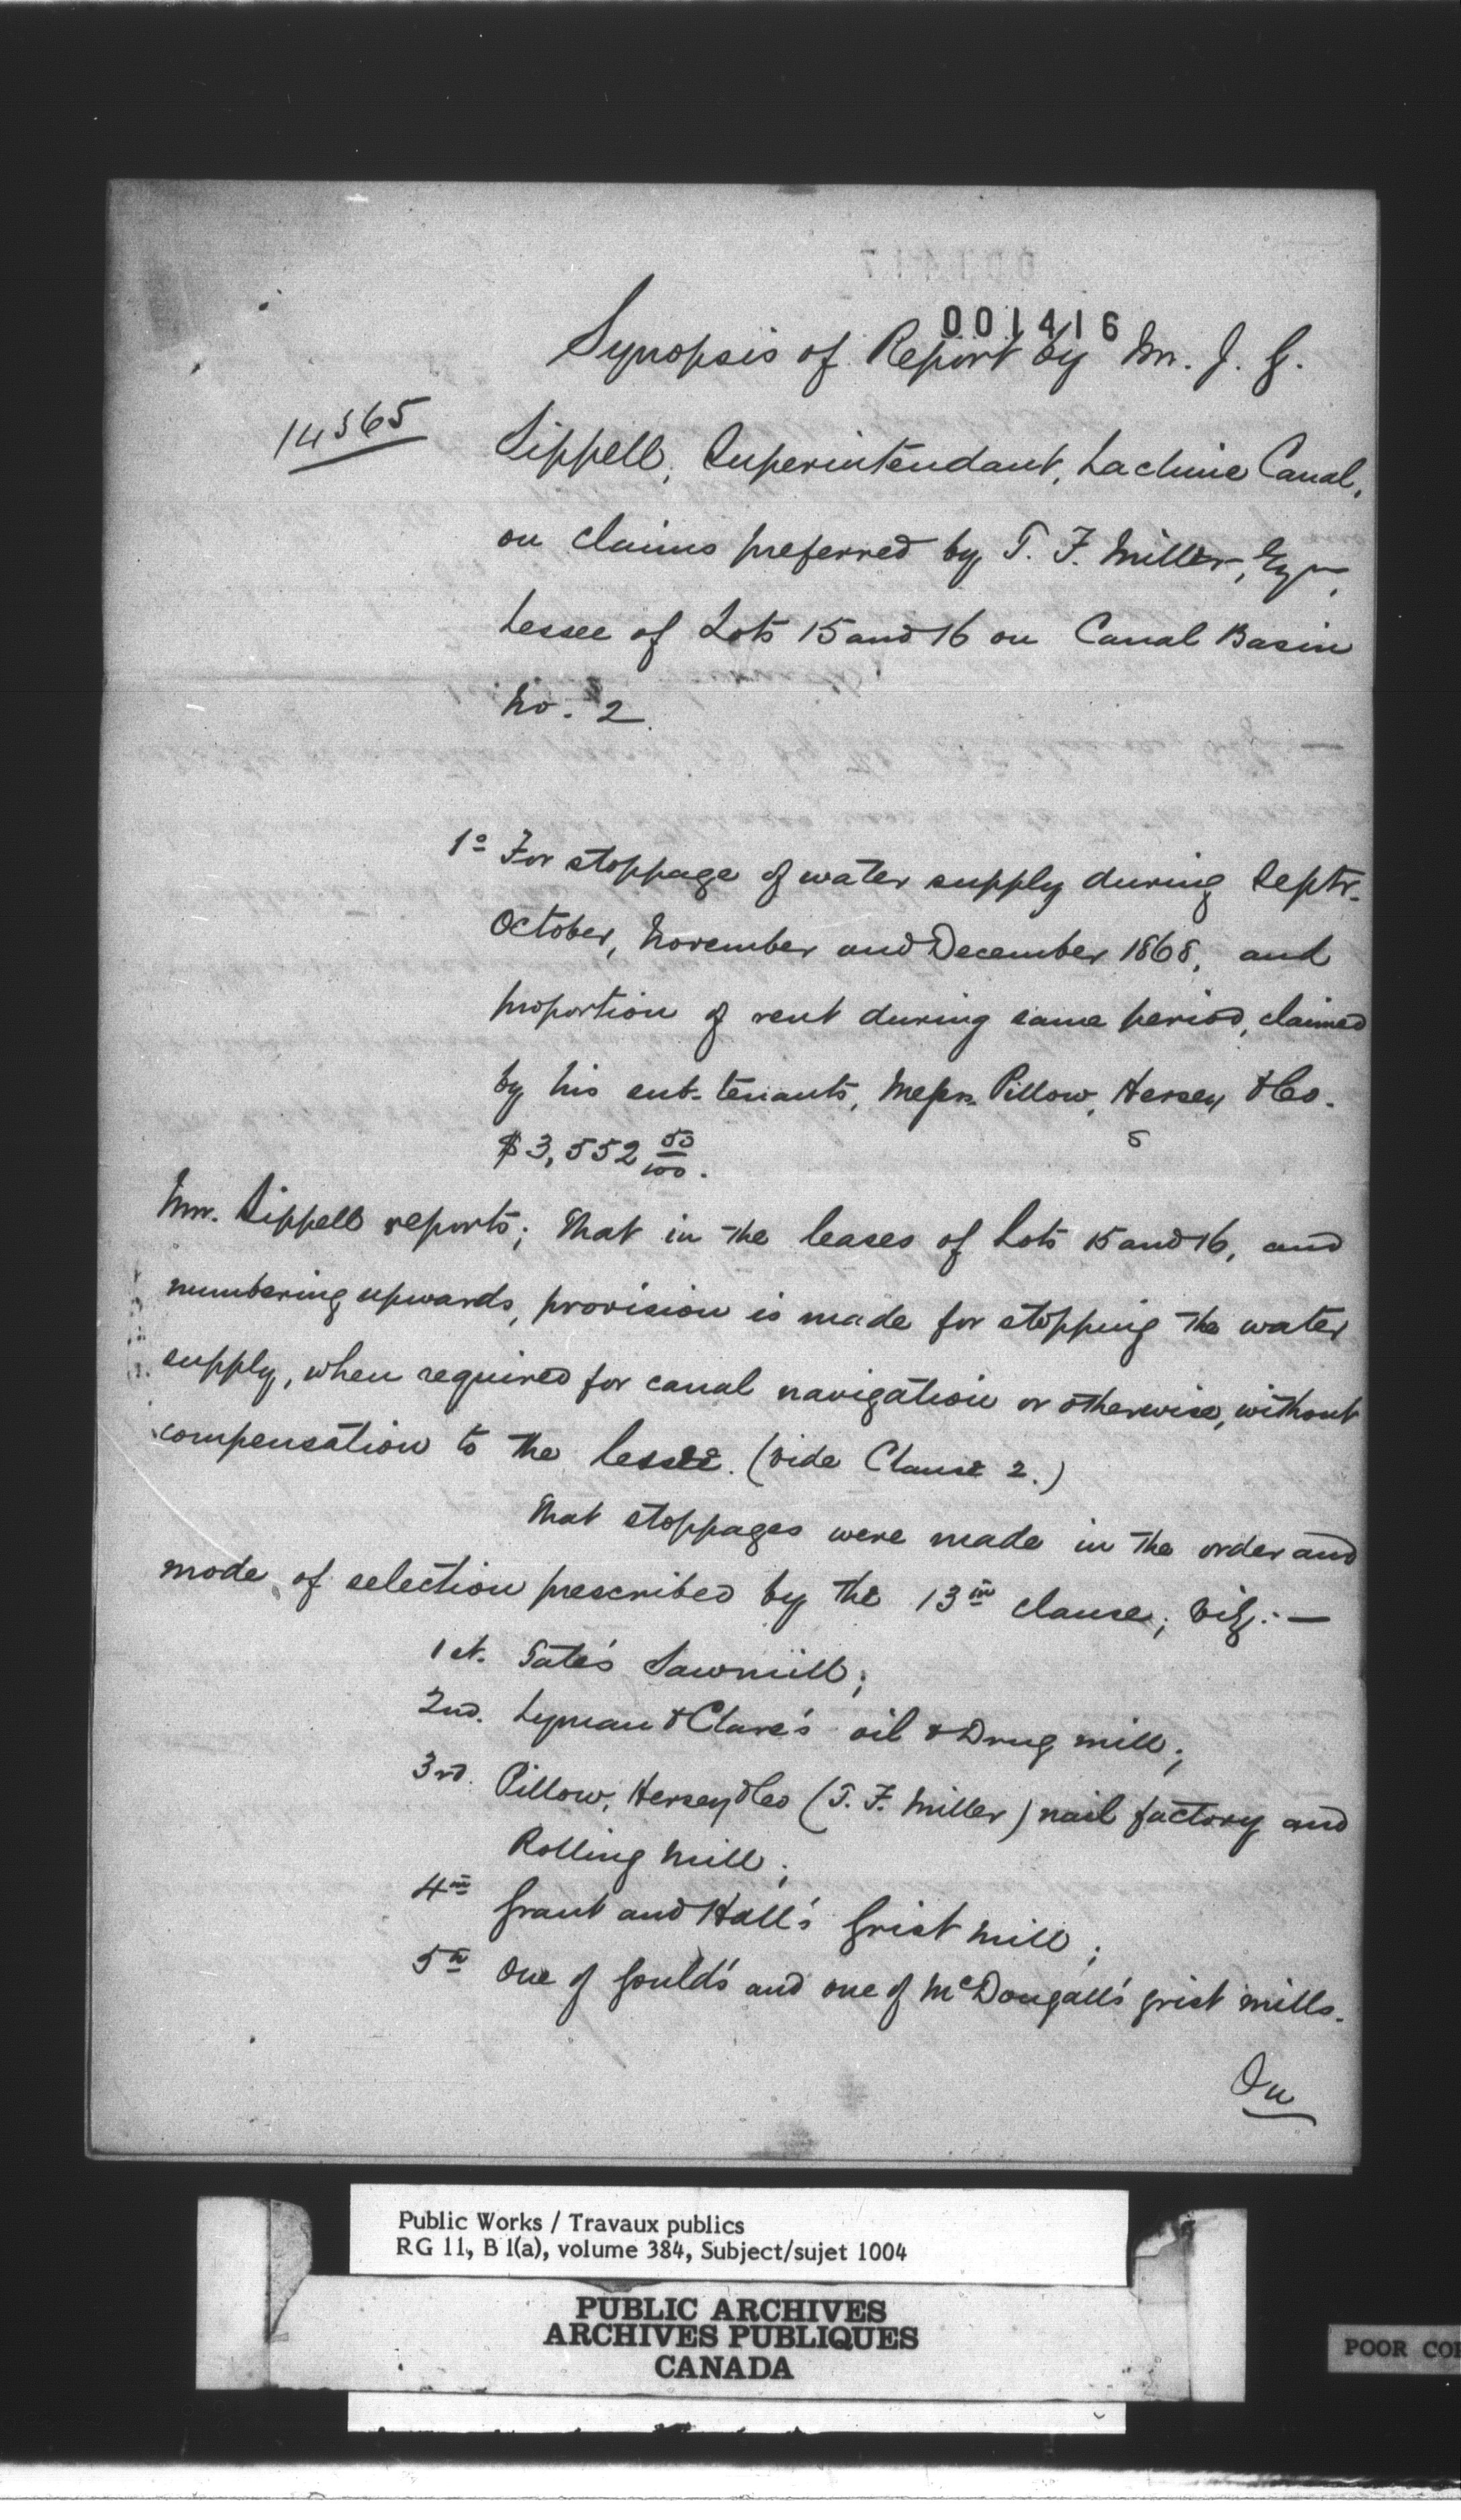 001416
Synopsis of Report by Mr. J. G.
14565
Sippell, Superintendant, Lachine Canal,
on claims preferred by T. F. Miller, Esqr,
Lessee of Lots 15 and 16 on Canal Basin
No. 2.
1º For stoppage of water supply during Septr.
October, November and December 1868, and
proportion of rent during same period, claimed
by his sub-tenants, Messrs. Pillow, Hersey & Co.
$3,552 50/100.
Mr. Sippell reports; That in the leases of Lots 15 and 16, and
numbering upwards, provision is made for stopping the water
supply, when required for canal navigation or otherwise, without
compensation to the lessee. (Vide Clause 2.)
That stoppages were made in the order and
mode of selection prescribed by the 13th clause; viz:—
1st. Tate's Sawmill;
2nd. Lyman & Clare's oil & Drug mill;
3rd. Pillow, Hersey & Co (T. F. Miller) nail factory and
Rolling Mill;
4th Grant and Hall's Grist Mill;
5th One of Gould's and one of McDougall's grist mills.
On
Public Works / Travaux publics
RG 11, B 1(a), volume 384, Subject/sujet 1004
PUBLIC ARCHIVES
ARCHIVES PUBLIQUES
CANADA
POOR CO